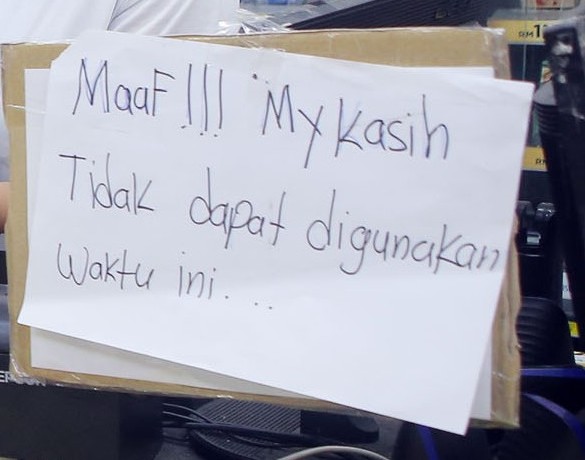 MaaF!!! MyKasih
Tidak dapat digunakan
Waktu ini...
RM1